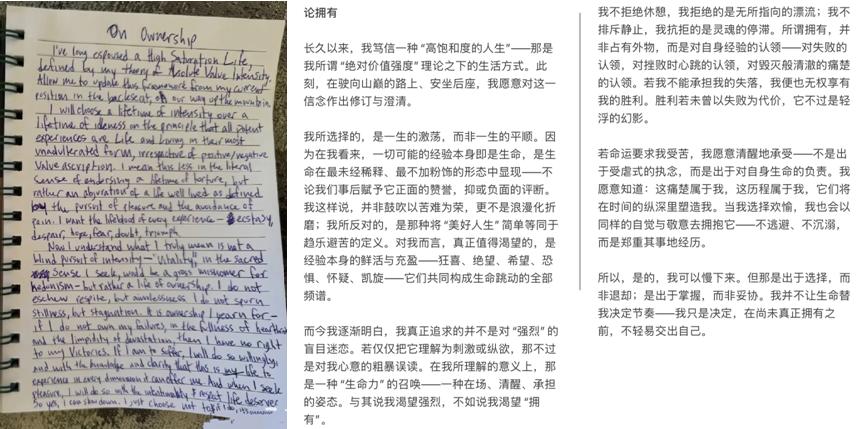 On Ownership
I've long espoused a High Saturation Life,
defined by my theory of Absolute Value Intensity.
Allow me to update this framework from my current
position in the backseat, on our way up the mountain.
I will choose a lifetime of intensity over a
lifetime of idleness on the principle that all potent
experiences are Life and Living in their most
unadulterated form, irrespective of positive/negative
value ascription. I mean this less in the literal
sense of endorsing a lifetime of torture, but
rather an abjuration of a life well lived as defined
by the pursuit of pleasure and the avoidance of
pain. I want the lifeblood of every experience - ecstasy,
despair, hope, fear, doubt, triumph.
Now I understand what I truly mean is not a
blind pursuit of intensity - "Vitality," in the sacred
sense I seek, would be a gross misnomer for
hedonism - but rather a life of ownership. I do not
eschew respite, but aimlessness. I do not spurn
stillness, but stagnation. It is ownership I yearn for -
if I do not own my failures, in the fullness of heartbeat
and the limpidity of devastation, then I have no right
to my victories. If I am to suffer, I will do so willingly,
and with the knowledge and clarity that this is my life is
experience in every dimension it can offer me. And when I seek
pleasure, I will do so with the intentionality & respect life deserves
So yes, I can slow down. I just choose not to
论拥有
长久以来，我笃信一种“高饱和度的人生”——那是
我所谓“绝对价值强度”理论之下的生活方式。此
刻，在驶向山巅的路上、安坐后座，我愿意对这一
信念作出修订与澄清。
我所选择的，是一生的激荡，而非一生的平顺。因
为在我看来，一切可能的经验本身即是生命，是生
命在最未经稀释、最不加粉饰的形态中显现——不
论我们事后赋予它正面的赞誉，抑或负面的评断。
我这样说，并非鼓吹以苦难为荣，更不是浪漫化折
磨；我所反对的，是那种将“美好人生”简单等同于
趋乐避苦的定义。对我而言，真正值得渴望的，是
经验本身的鲜活与充盈——狂喜、绝望、希望、恐
惧、怀疑、凯旋——它们共同构成生命跳动的全部
频谱。
而今我逐渐明白，我真正追求的并不是对“强烈”的
盲目迷恋。若仅仅把它理解为刺激或纵欲，那不过
是对我心意的粗暴误读。在我所理解的意义上，那
是一种“生命力”的召唤——一种在场、清醒、承担
的姿态。与其说我渴望强烈，不如说我渴望“拥
有”。
我不拒绝休憩，我拒绝的是无所指向的漂流；我不
排斥静止，我抗拒的是灵魂的停滞。所谓拥有，并
非占有外物，而是对自身经验的认领——对失败的
认领，对挫败时心跳的认领，对毁灭般清澈的痛楚
的认领。若我不能承担我的失落，我便也无权享有
我的胜利。胜利若未曾以失败为代价，它不过是轻
浮的幻影。
若命运要求我受苦，我愿意清醒地承受——不是出
于受虐式的执念，而是出于对自身生命的负责。我
愿意知道：这痛楚属于我，这历程属于我，它们将
在时间的纵深里塑造我。当我选择欢愉，我也会以
同样的自觉与敬意去拥抱它——不逃避、不沉溺，
而是郑重其事地经历。
所以，是的，我可以慢下来。但那是出于选择，而
非退却；是出于掌握，而非妥协。我并不让生命替
我决定节奏——我只是决定，在尚未真正拥有之
前，不轻易交出自己。